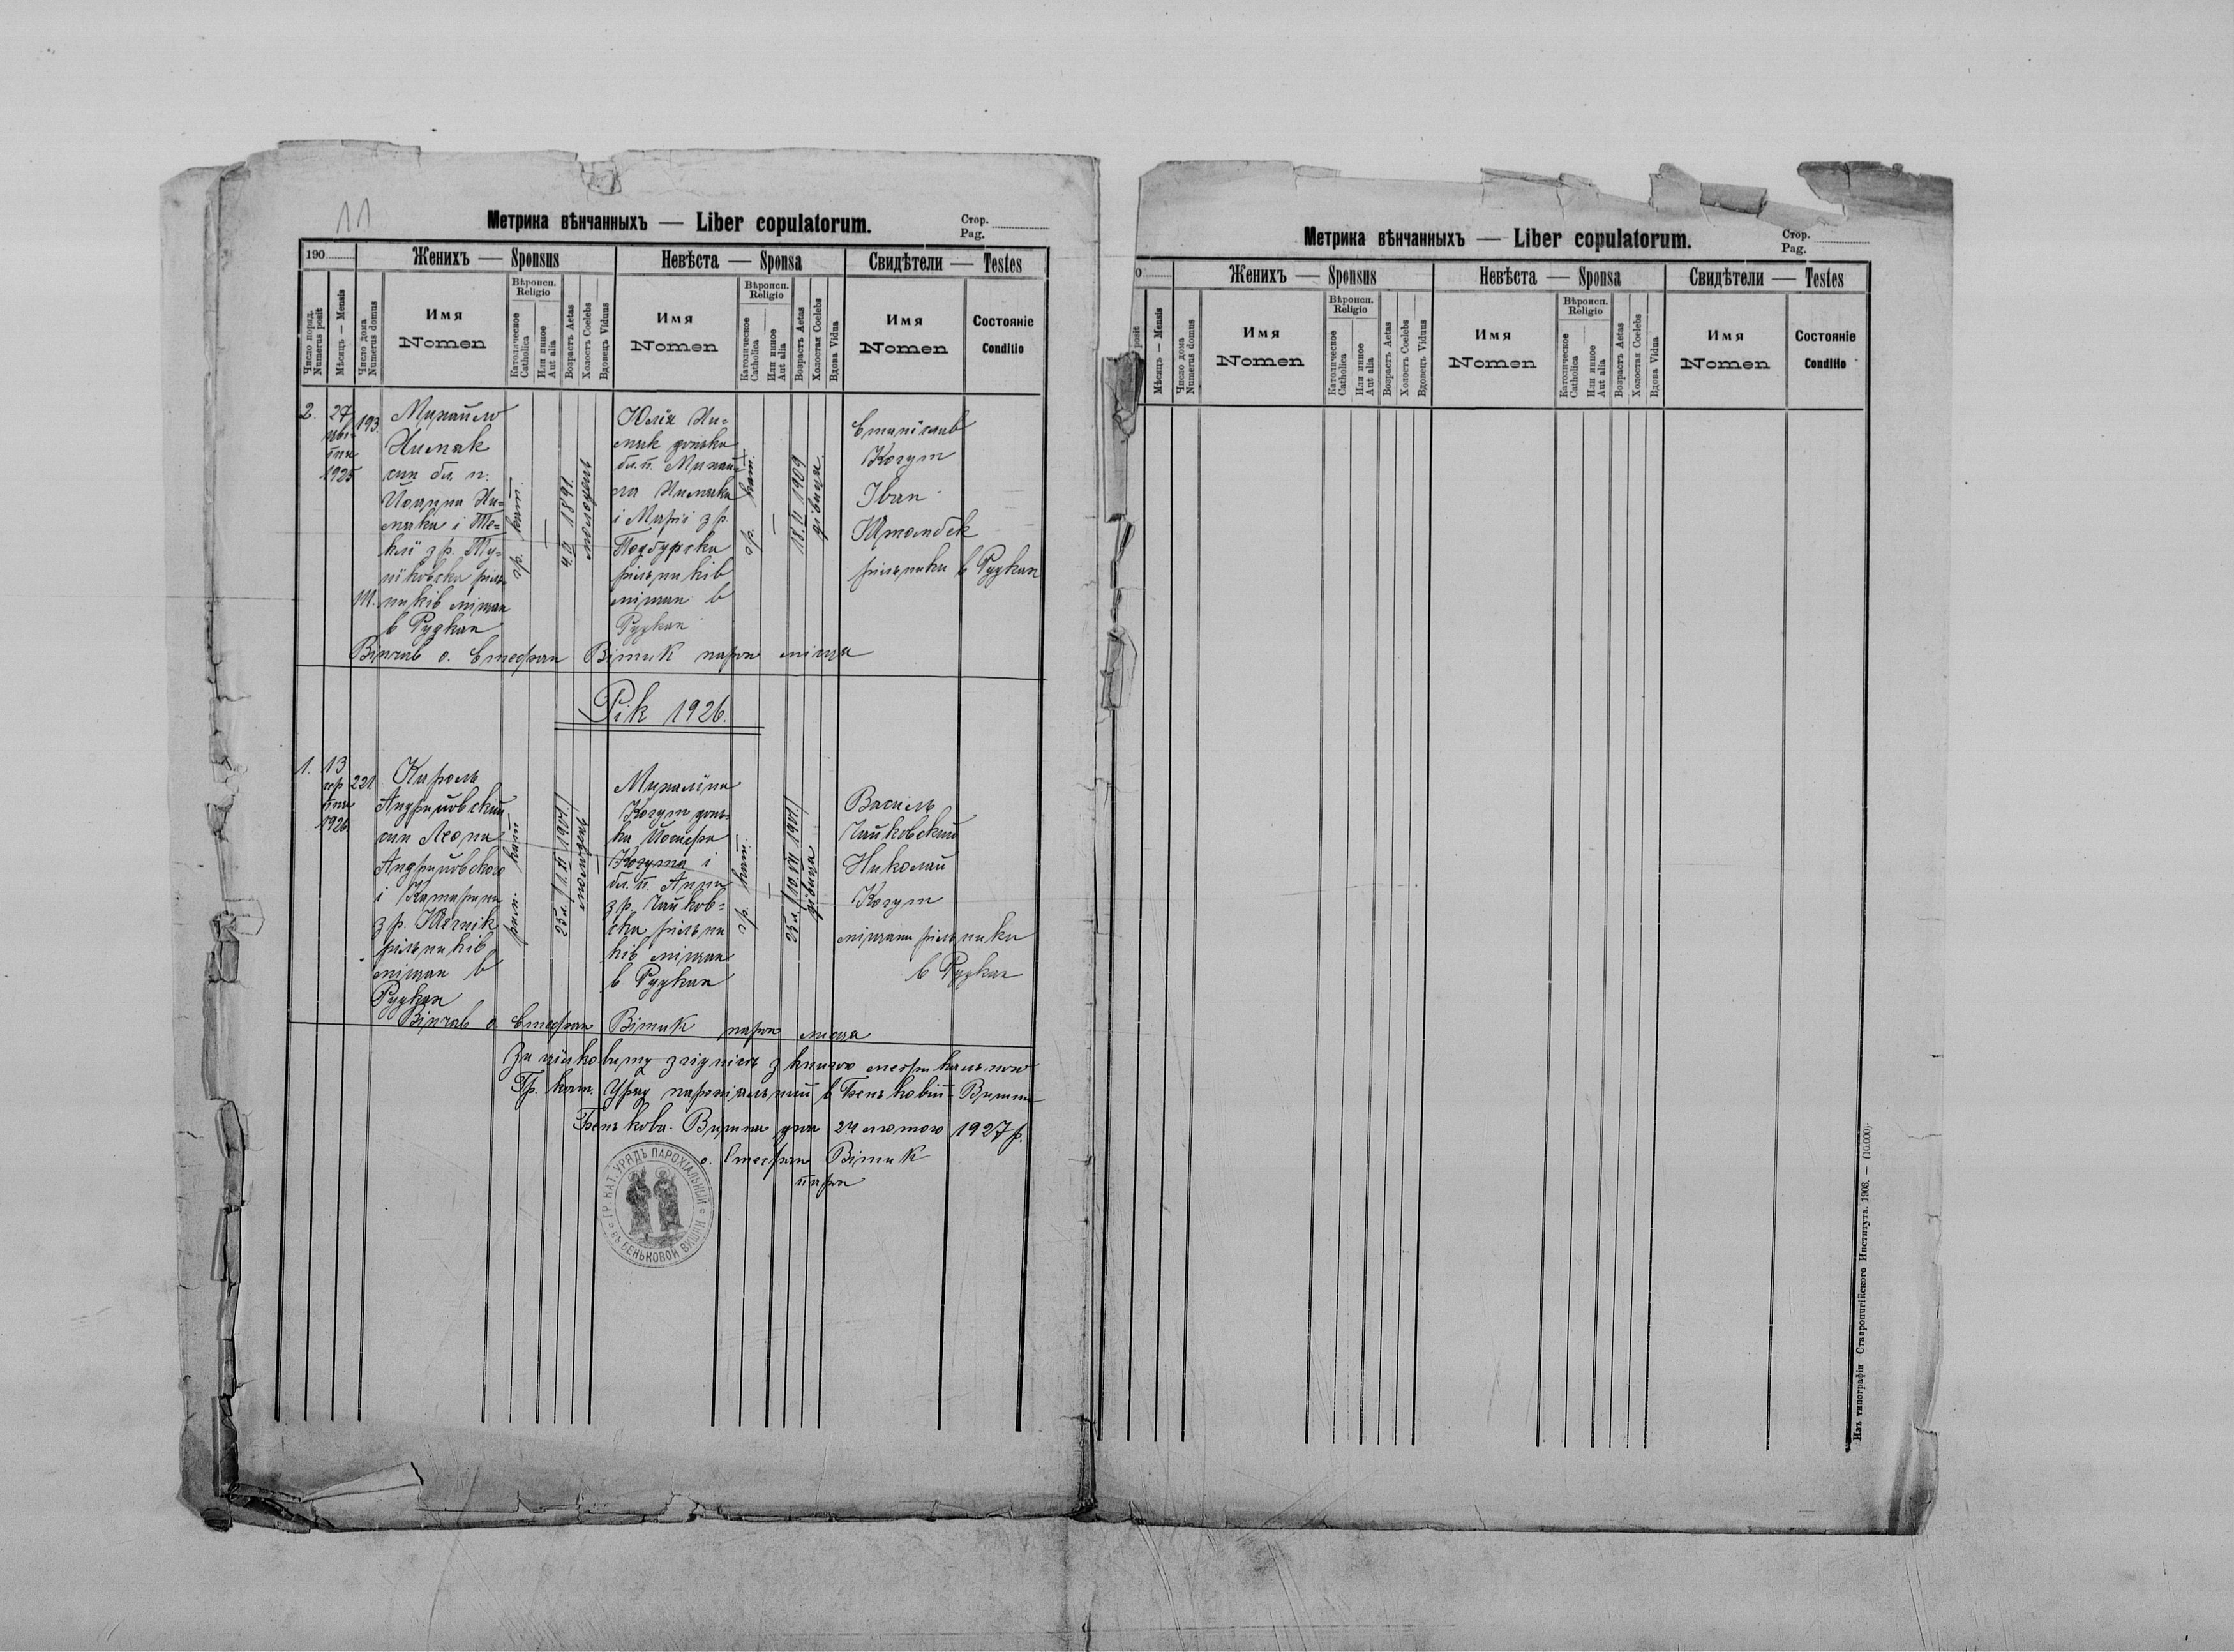 11
Метрика вѣнчанныхъ — Liber copulatorum.
Стор.
Pag.
190
Женихъ — Sponsus
Невѣста — Sponsa
Свидѣтели — Testes
Число поряд.
Numerus posit
Мѣсяцъ — Mensis
Число дома
Numerus domus
Имя
Nomen
Вѣроисп.
Religio
Католическое
Catholica
Или инное
Aut alia
Возрастъ Aetas
Холостъ Coelebs
Вдовецъ Viduus
Имя
Nomen
Вѣроисп.
Religio
Католическое
Catholica
Или инное
Aut alia
Возрастъ Aetas
Холостая Coelebs
Вдова Vidua
Имя
Nomen
Состояніе
Conditio
2.
27
цві-
тня
1925
193
Михайло
син бл. п.
Йоанна
і Те-
клї з р.
ріль-
ників міщан
в Рудках
гр. кат.
4. II 1891.
молодець
Юлїя
донька
бл. п. Михай-
ла
і Марії з р.
рільників
міщан в
Рудках
гр. кат.
18. II 1909
дівиця
Станїслав
Когут
Іван
Штомбек
рільники в Рудках
Вінчав о. Стефан Вітик парох місця
Рік 1926.
1.
13
сер
пня
1926
221
Кароль
Андрийовский
син Леона
Андрийовского
і Катарини
з р.
рільників
міщан в
Рудках
рим. кат.
25 л. / 1. II 1901 /
молодець
Михалїна
Когут донь-
ка Йосифа
Когута і
бл. п. Анни
з р. Чайков-
ска рільни
ків міщан
в Рудках
гр. кат.
25 л. / 10. VII 1901 /
дівиця
Василь
Чайковский
Николай
Когут
міщани рільники
в Рудках
Вінчав о. Стефан Вітик парох місця
За цілковиту згідність з книгою метрикальною
Гр. кат. Уряд парохіяльний в Беньковій Вишни
Бенькова Вишня дня 24 лютого 1927 р.
о. Стефан Вітик
парох
ГР. КАТ. УРЯДЪ ПАРОХІАЛЬНЫЙ
ВЪ БЕНЬКОВОЙ ВИШНИ
Метрика вѣнчанныхъ — Liber copulatorum.
Стор.
Pag.
0
Женихъ — Sponsus
Невѣста — Sponsa
Свидѣтели — Testes
posit
Мѣсяцъ — Mensis
Число дома
Numerus domus
Имя
Nomen
Вѣроисп.
Religio
Католическое
Catholica
Или инное
Aut alia
Возрастъ Aetas
Холостъ Coelebs
Вдовецъ Viduus
Имя
Nomen
Вѣроисп.
Religio
Католическое
Catholica
Или инное
Aut alia
Возрастъ Aetas
Холостая Coelebs
Вдова Vidua
Имя
Nomen
Состояніе
Conditio
Изъ типографіи Ставропигійского Института. 1908. — (10.000).